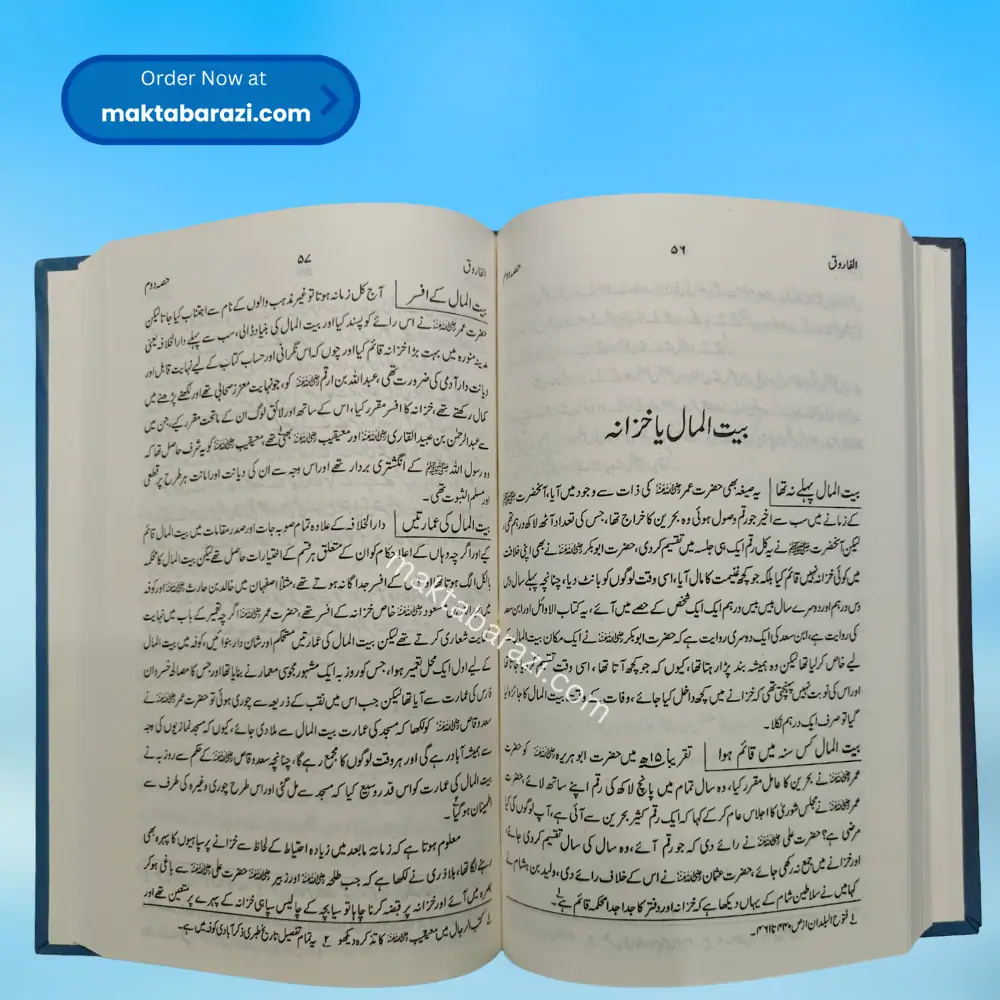 Order Now at
maktabarazi.com
الفاروق
۵۶
حصہ دوم
بیت المال یا خزانہ
بیت المال پہلے نہ تھا یہ صیغہ بھی حضرت عمر رضی اللہ عنہ کی ذات سے وجود میں آیا، آنحضرت ﷺ
کے زمانے میں سب سے اخیر جو رقم وصول ہوئی وہ بحرین کا خراج تھا، جس کی تعداد آٹھ لاکھ درہم تھی،
لیکن آنحضرت ﷺ نے یہ کل رقم ایک ہی جلسہ میں تقسیم کر دی، حضرت ابوبکر رضی اللہ عنہ نے بھی اپنی خلافت
میں کوئی خزانہ نہیں قائم کیا بلکہ جو کچھ غنیمت کا مال آیا، اسی وقت لوگوں کو بانٹ دیا، چنانچہ پہلے سال دس
دس درہم اور دوسرے سال بیس بیس درہم ایک ایک شخص کے حصے میں آئے، یہ کتاب الاوائل اور ابن سعد
کی روایت ہے، ابن سعد کی ایک دوسری روایت ہے کہ حضرت ابوبکر رضی اللہ عنہ نے ایک مکان بیت المال کے
لیے خاص کر لیا تھا لیکن وہ ہمیشہ بند پڑا رہتا تھا، کیوں کہ جو کچھ آتا تھا، اسی وقت تقسیم
اور اس کی نوبت نہیں پہنچتی تھی کہ خزانے میں کچھ داخل کیا جائے، وفات کے وقت بیت المال کا جائزہ لیا
گیا تو صرف ایک درہم نکلا۔
بیت المال کس سنہ میں قائم ہوا تقریباً ۱۵ھ میں حضرت ابوہریرہ رضی اللہ عنہ کو حضرت
عمر رضی اللہ عنہ نے بحرین کا عامل مقرر کیا، وہ سال تمام میں پانچ لاکھ کی رقم اپنے ساتھ لائے، حضرت
عمر رضی اللہ عنہ نے مجلس شوریٰ کا اجلاس عام کر کے کہا کہ ایک رقم کثیر بحرین سے آئی ہے، آپ لوگوں کی کیا
مرضی ہے؟ حضرت علی رضی اللہ عنہ نے رائے دی کہ جو رقم آئے، وہ سال کی سال تقسیم کر دی جائے،
اور خزانے میں جمع نہ رکھی جائے، حضرت عثمان رضی اللہ عنہ نے اس کے خلاف رائے دی، ولید بن ہشام نے
کہا میں نے سلاطین شام کے یہاں دیکھا ہے کہ خزانہ اور دفتر کا جدا جدا محکمہ قائم ہے۔ ۱
۱ فتوح البلدان از ص ۴۳۰ تا ۴۶۱۔
الفاروق
۵۷
حصہ دوم
بیت المال کے افسر آج کل زمانہ ہوتا تو غیر مذہب والوں کے نام سے اجتناب کیا جاتا لیکن
حضرت عمر رضی اللہ عنہ نے اس رائے کو پسند کیا اور بیت المال کی بنیاد ڈالی، سب سے پہلے دار الخلافہ یعنی
مدینہ منورہ میں بہت بڑا خزانہ قائم کیا اور چوں کہ اس نگرانی اور حساب کتاب کے لیے نہایت قابل اور
دیانت دار آدمی کی ضرورت تھی، عبداللہ بن ارقم رضی اللہ عنہ کو، جو نہایت معزز صحابی تھے اور لکھنے پڑھنے میں
کمال رکھتے تھے، خزانہ کا افسر مقرر کیا، اس کے ساتھ اور لائق لوگ ان کے ماتحت مقرر کیے، جن میں
سے عبدالرحمٰن بن عبید القاری رضی اللہ عنہ اور معیقیب رضی اللہ عنہ بھی تھے، معیقیب رضی اللہ عنہ کو یہ شرف حاصل تھا کہ
وہ رسول اللہ ﷺ کے انگشتری بردار تھے اور اس وجہ سے ان کی دیانت اور امانت ہر طرح پر قطعی
اور مسلم الثبوت تھی۔
بیت المال کی عمارتیں دار الخلافہ کے علاوہ تمام صوبہ جات اور صدر مقامات میں بیت المال قائم
کیے اور اگرچہ وہاں کے اعلا حکام کو ان کے متعلق ہر قسم کے اختیارات حاصل تھے لیکن بیت المال کا محکمہ
بالکل الگ ہوتا تھا اور اس کے افسر جداگانہ ہوتے تھے، مثلاً اصفہان میں خالد بن حارث رضی اللہ عنہ اور کوفہ
میں مسعود رضی اللہ عنہ خاص خزانہ کے افسر تھے، حضرت عمر رضی اللہ عنہ اگرچہ تعمیر کے باب میں نہایت
کفایت شعاری کرتے تھے لیکن بیت المال کی عمارتیں مستحکم اور شان دار بنوائیں، کوفہ میں بیت المال
کے لیے اول ایک محل تعمیر ہوا، جس کو روزبہ ایک مشہور مجوسی معمار نے بنایا تھا اور جس کا مصالحہ خسروان
فارس کی عمارت سے آیا تھا لیکن جب اس میں نقب کے ذریعہ سے چوری ہوئی تو حضرت عمر رضی اللہ عنہ نے
سعد وقاص رضی اللہ عنہ کو لکھا کہ مسجد کی عمارت بیت المال سے ملا دی جائے، کیوں کہ مسجد نمازیوں کی وجہ
سے ہمیشہ آباد رہے گی اور ہر وقت لوگوں کا مجمع رہے گا، چنانچہ سعد وقاص رضی اللہ عنہ کے حکم سے روزبہ نے
بیت المال کی عمارت کو اس قدر وسیع کیا کہ مسجد سے مل گئی اور اس طرح چوری وغیرہ کی طرف سے
اطمینان ہوگیا۔ ۲
معلوم ہوتا ہے کہ زمانۂ مابعد میں زیادہ احتیاط کے لحاظ سے خزانے پر سپاہیوں کا پہرہ بھی
رہنے لگا تھا، بلاذری نے لکھا ہے کہ جب طلحہ رضی اللہ عنہ اور زبیر رضی اللہ عنہ حضرت علی رضی اللہ عنہ سے باغی ہو کر
بصرہ میں آئے اور خزانہ پر قبضہ کرنا چاہا تو سیابجہ کے چالیس سپاہی خزانہ کے پہرے پر متعین تھے اور
۱ کتب الرجال میں معیقیب رضی اللہ عنہ کا تذکرہ دیکھو ۲ یہ تمام تفصیل تاریخ طبری ذکر آبادی کوفہ میں ہے۔
maktabarazi.com